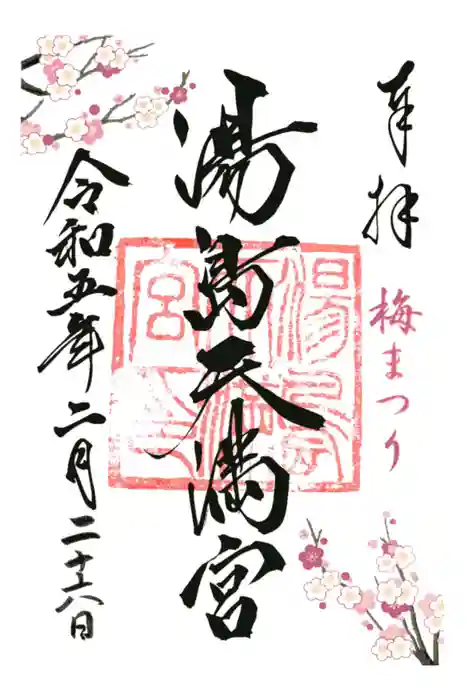 奉拝
梅まつり
湯島天満宮
令和五年二月二十六日